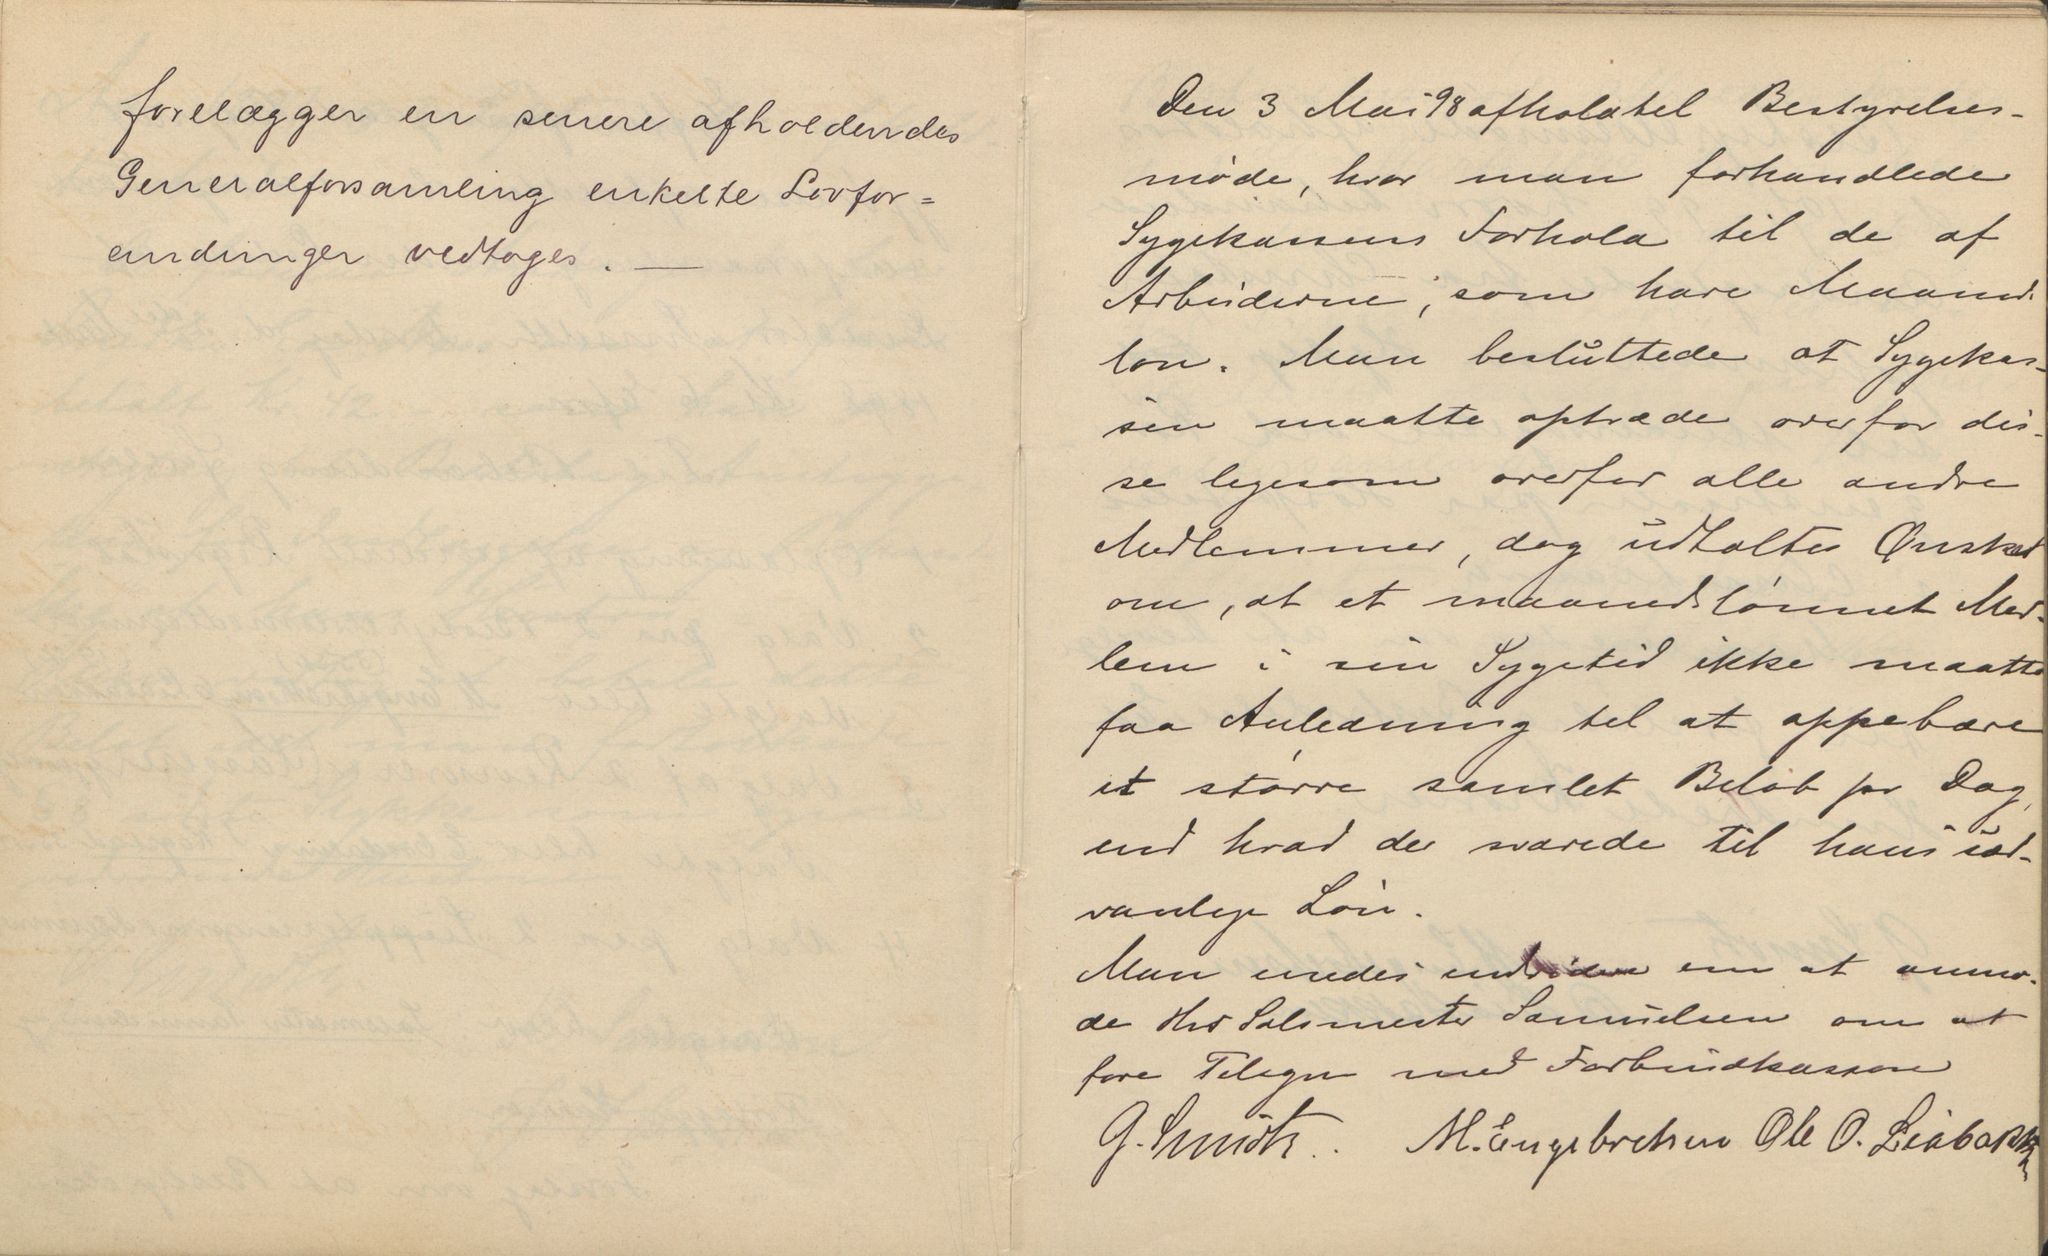 forelægger en senere afholdendes
Generalforsamling enkelte Lovfor=
andringer vedtoges. —
Den 3 Mai 98 afholdtel Bestyrelses-
møde, hvor man forhandlede
Sygekassens Forhold til de af
Arbeiderne, som have Maaneds
løn. Man besluttede at Sygekas-
sen maatte optræde overfor dis-
se ligesom overfor alle andre
Medlemmer, dog udtaltes Ønsket
om, at et maanedslønnet Med-
lem i sin Sygetid ikke maatte
faa Anledning til at oppebære
et større samlet Beløb pr Dag,
end hvad der svarede til hans sæd-
vanlige Løn.
Man enedes endvidere om at anmo-
de Hrr Salsmester Samuelsen om at
føre Tilsyn med Forbindkassene
G. Smith. M. Engebretsen Ole O. Liabakk